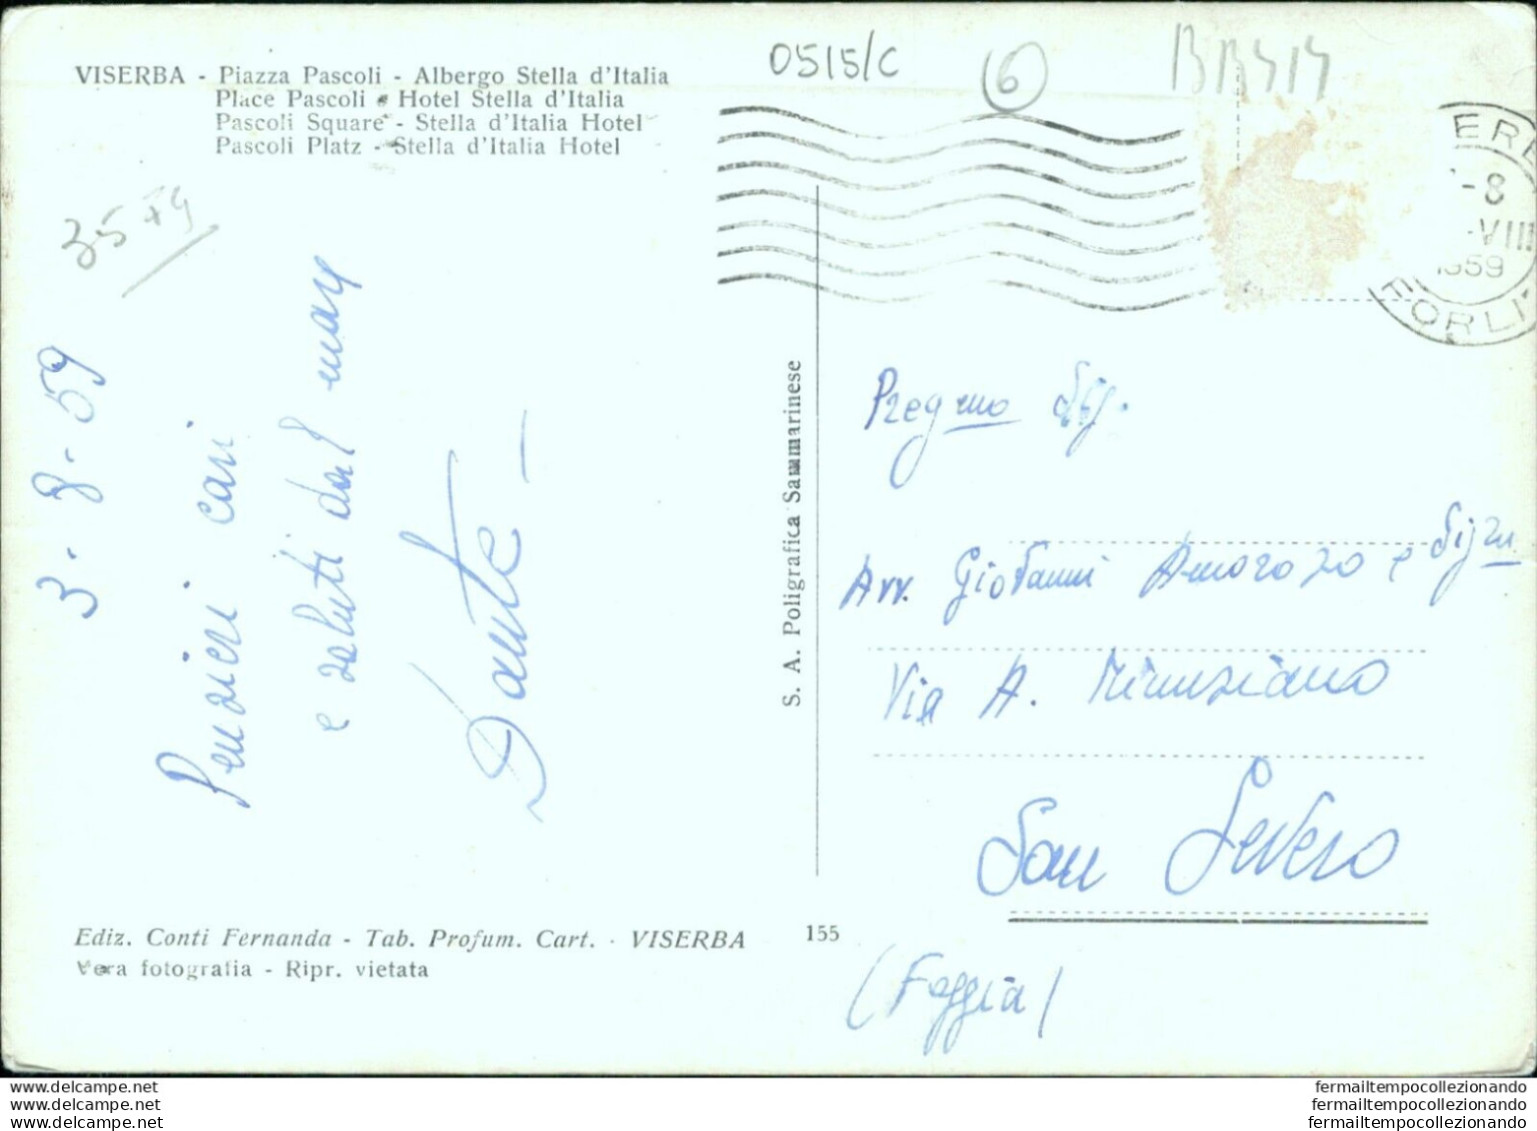 VISERBA - Piazza Pascoli - Albergo Stella d'Italia
Place Pascoli - Hotel Stella d'Italia
Pascoli Square - Stella d'Italia Hotel
Pascoli Platz - Stella d'Italia Hotel
0515/C
6
3-8-59
Pensieri cari
e saluti dal mare
Dante
S. A. Poligrafica Sammarinese
-8
-VIII
1959
FORLI
Pregmo Sig.
Avv. Giovanni Amoroso e Sigra
Via A. Minuziano
San Severo
(Foggia)
Ediz. Conti Fernanda - Tab. Profum. Cart. - VISERBA
155
Vera fotografia - Ripr. vietata
www.delcampe.net
www.delcampe.net
www.delcampe.net
fermailtempocollezionando
fermailtempocollezionando
fermailtempocollezionando